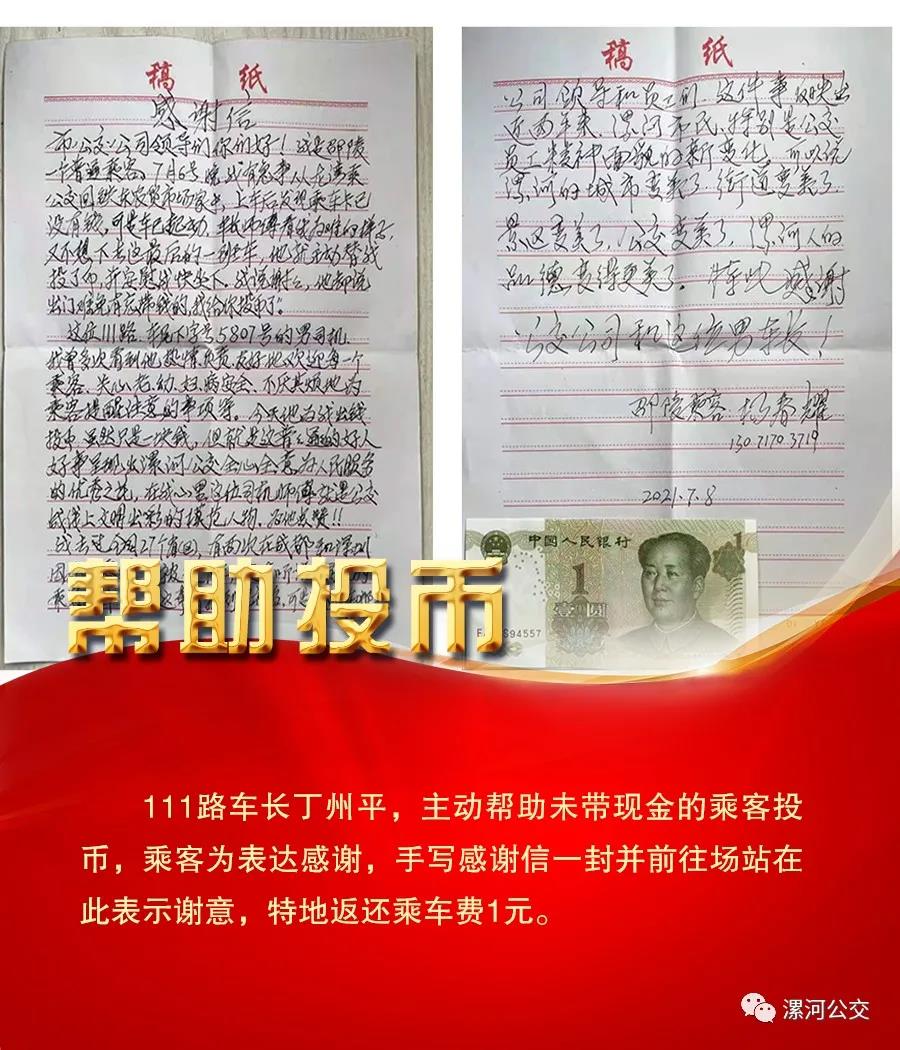 稿 纸
感谢信
市公交公司领导们你们好！这是郾陵
一个普通乘客，7月6号晚，我有急事从在鸿乘
上车后发现乘车卡已
没有钱，可是车已起动，车长师傅看我为难的样子，
又不想下去这最后的一班车，他就主动替我
投了币，并安慰我快坐下，我说谢谢，他却说
出门难免有忘带钱的，我给你投币了"
这位111路，车尾下字号5807号的男司机，
我曾多次看到他热情负责、友好地欢迎每一个
乘客、关心老、幼、妇、病安全、不厌其烦地为
乘客提醒注意的事项等。今天他为我出钱
投币虽然只是一块钱，但就是这普通的好人
好事呈现出漯河公交全心全意为人民服务
的优秀之花，在我心里这位司机师傅就是公交
战线上文明出彩的模范人物，为他点赞！！
我去过全国27个省
稿 纸
公司领导和员工们 这件事 映出
近两年来，漯河市民，特别是公交
员工精神面貌的新变化，可以说
漯河的城市变美了，街道变美了
景区变美了，公交变美了，漯河人的
品德变得更美了。特此感谢
公交公司和这位男车长！
乘客 春耀
130 7170 3719
2021.7.8
中国人民银行
1
1
壹圆
94557
帮助投币
111路车长丁州平，主动帮助未带现金的乘客投
币，乘客为表达感谢，手写感谢信一封并前往场站在
此表示谢意，特地返还乘车费1元。
漯河公交